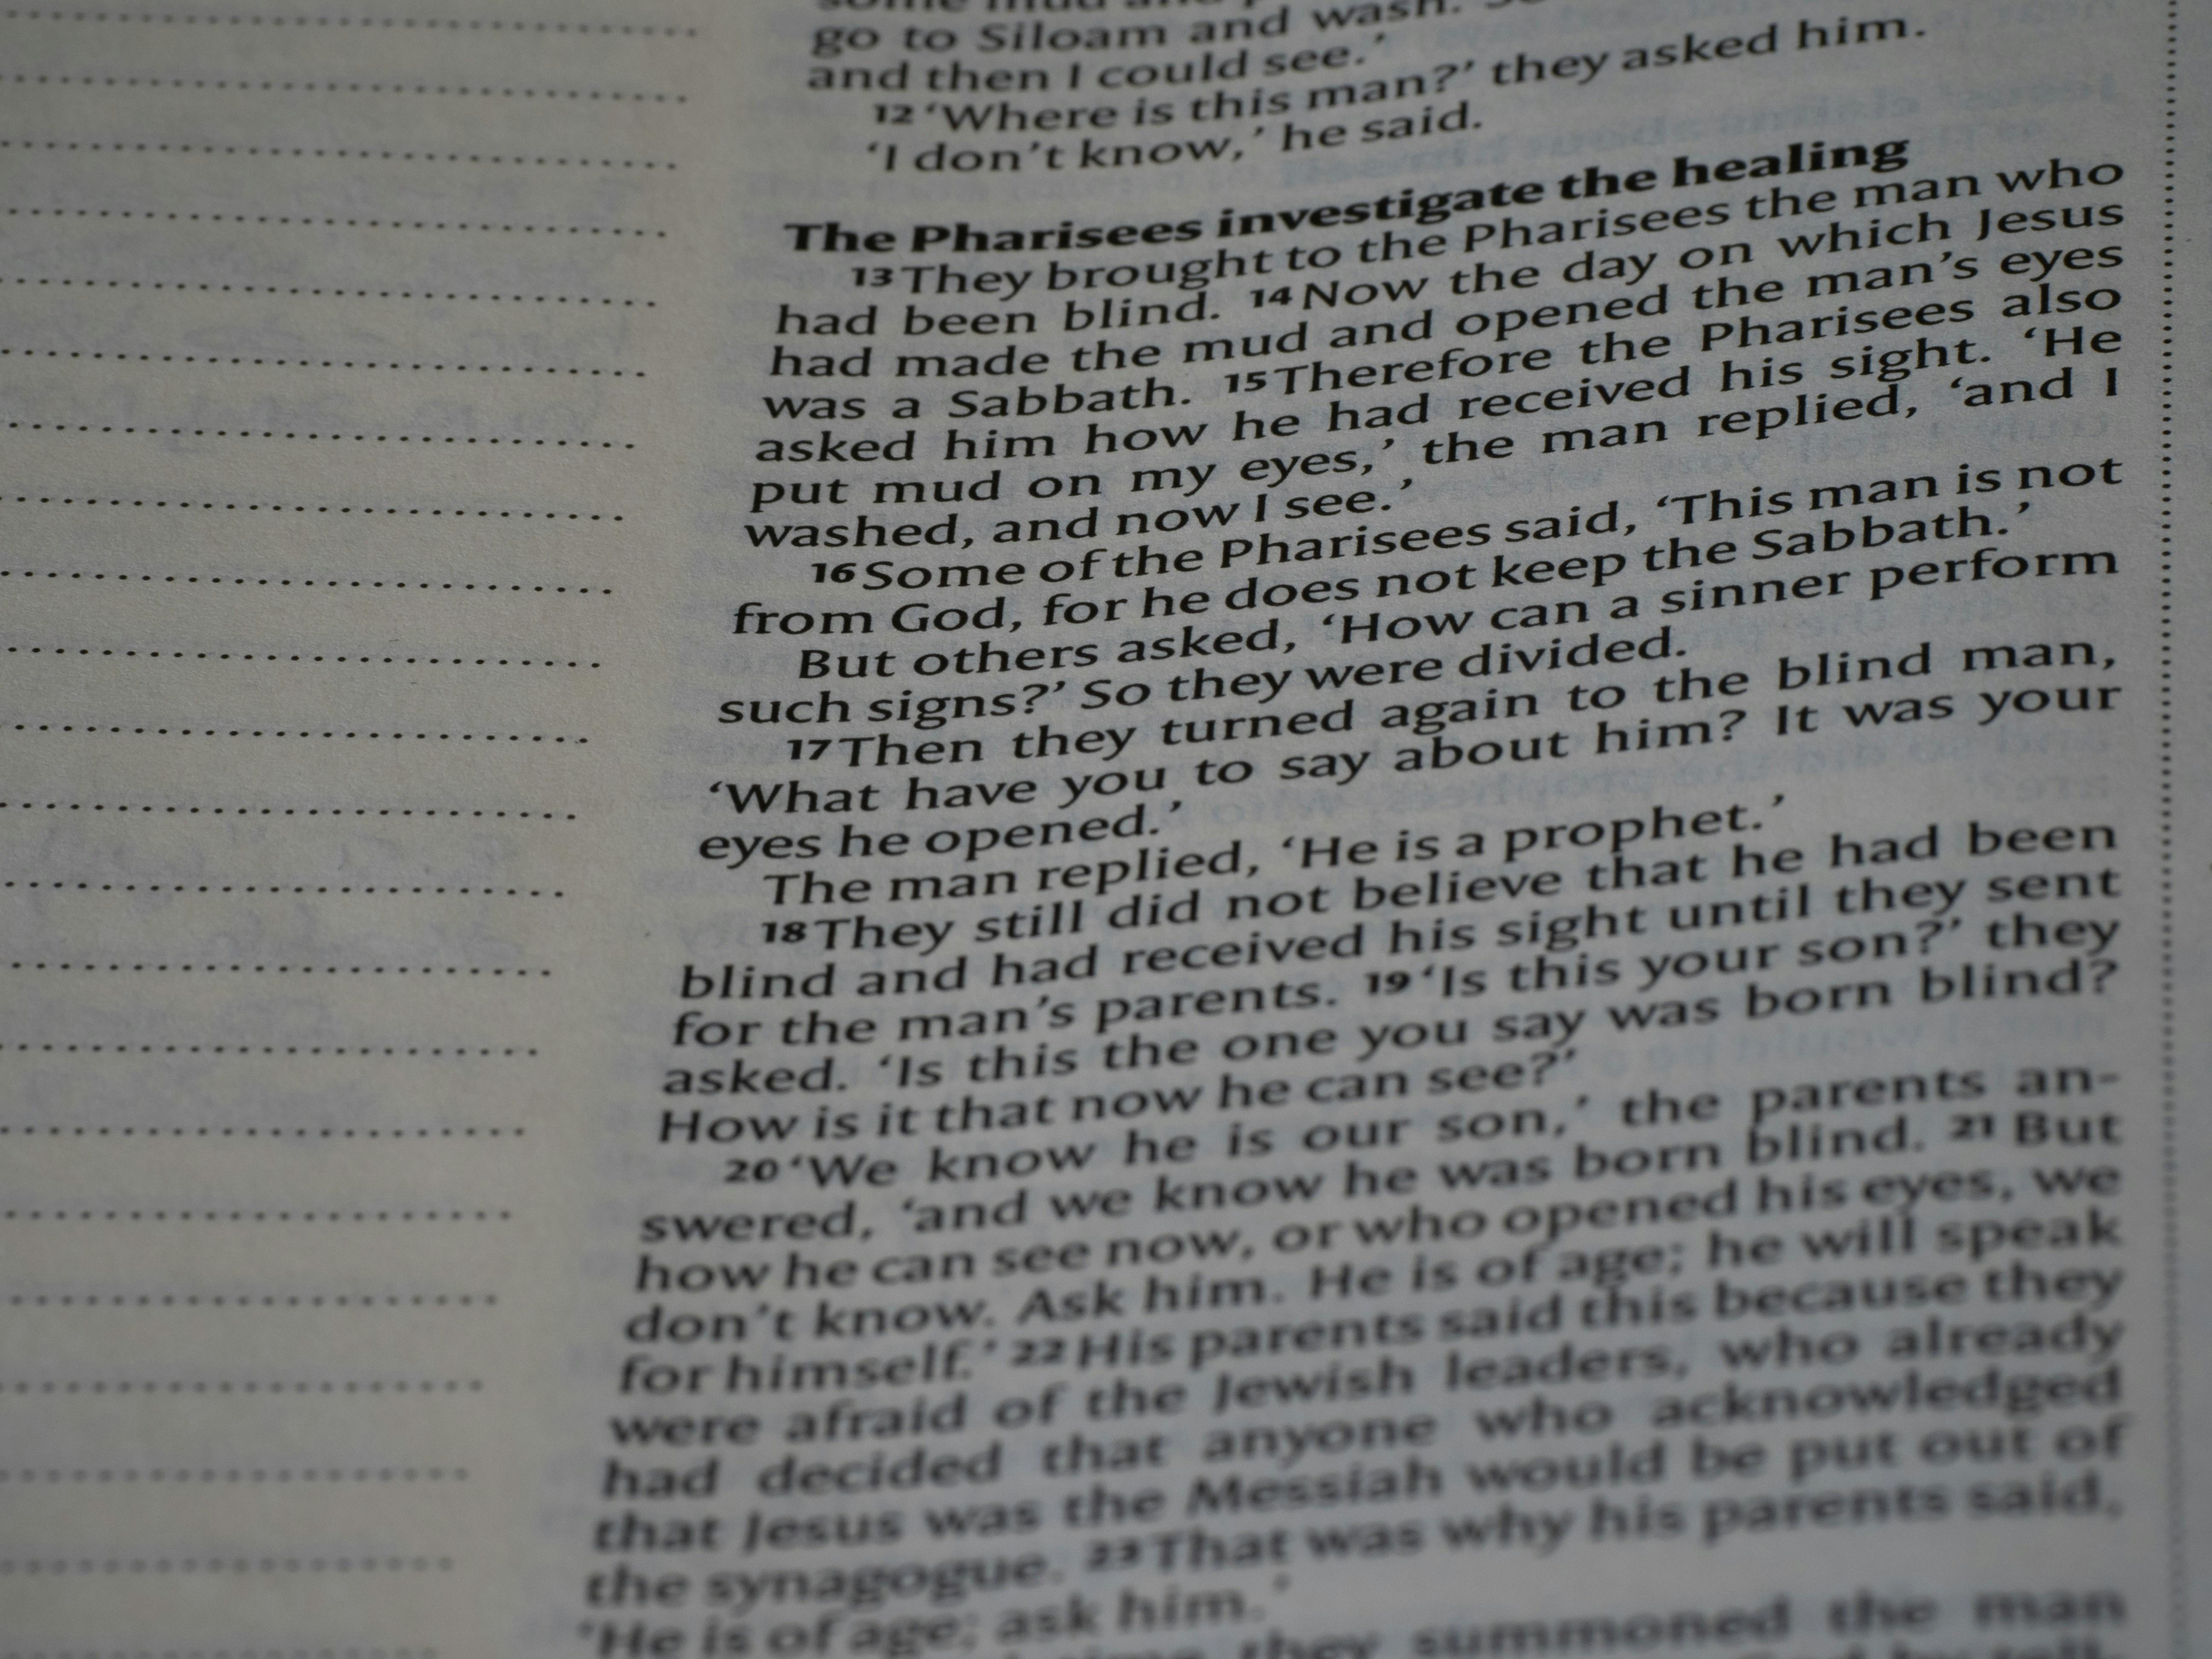 go to Siloam and wash.
and then I could see.’
12 ‘Where is this man?’ they asked him.
‘I don’t know,’ he said.
The Pharisees investigate the healing
13 They brought to the Pharisees the man who
had been blind. 14 Now the day on which Jesus
had made the mud and opened the man’s eyes
was a Sabbath. 15 Therefore the Pharisees also
asked him how he had received his sight. ‘He
put mud on my eyes,’ the man replied, ‘and I
washed, and now I see.’
16 Some of the Pharisees said, ‘This man is not
from God, for he does not keep the Sabbath.’
But others asked, ‘How can a sinner perform
such signs?’ So they were divided.
17 Then they turned again to the blind man,
‘What have you to say about him? It was your
eyes he opened.’
The man replied, ‘He is a prophet.’
18 They still did not believe that he had been
blind and had received his sight until they sent
for the man’s parents. 19 ‘Is this your son?’ they
asked. ‘Is this the one you say was born blind?
How is it that now he can see?’
20 ‘We know he is our son,’ the parents an-
swered, ‘and we know he was born blind. 21 But
how he can see now, or who opened his eyes, we
don’t know. Ask him. He is of age; he will speak
for himself.’ 22 His parents said this because they
were afraid of the Jewish leaders, who already
had decided that anyone who acknowledged
that Jesus was the Messiah would be put out of
the synagogue. 23 That was why his parents said,
‘He is of age; ask him.’
time they summoned the man